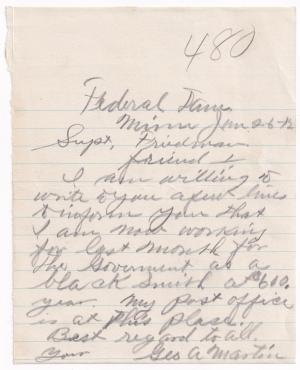 480
Federal Dam
Minn Jan 26-12
Supt, Friedman
friend I
I am willing to
write to you a few lines
to inform you that
I am now working
for last month for
the Goverment as a
black Smith at $600.
year. My post office
is at this place.
Best regard to all.
Your Geo A Martin